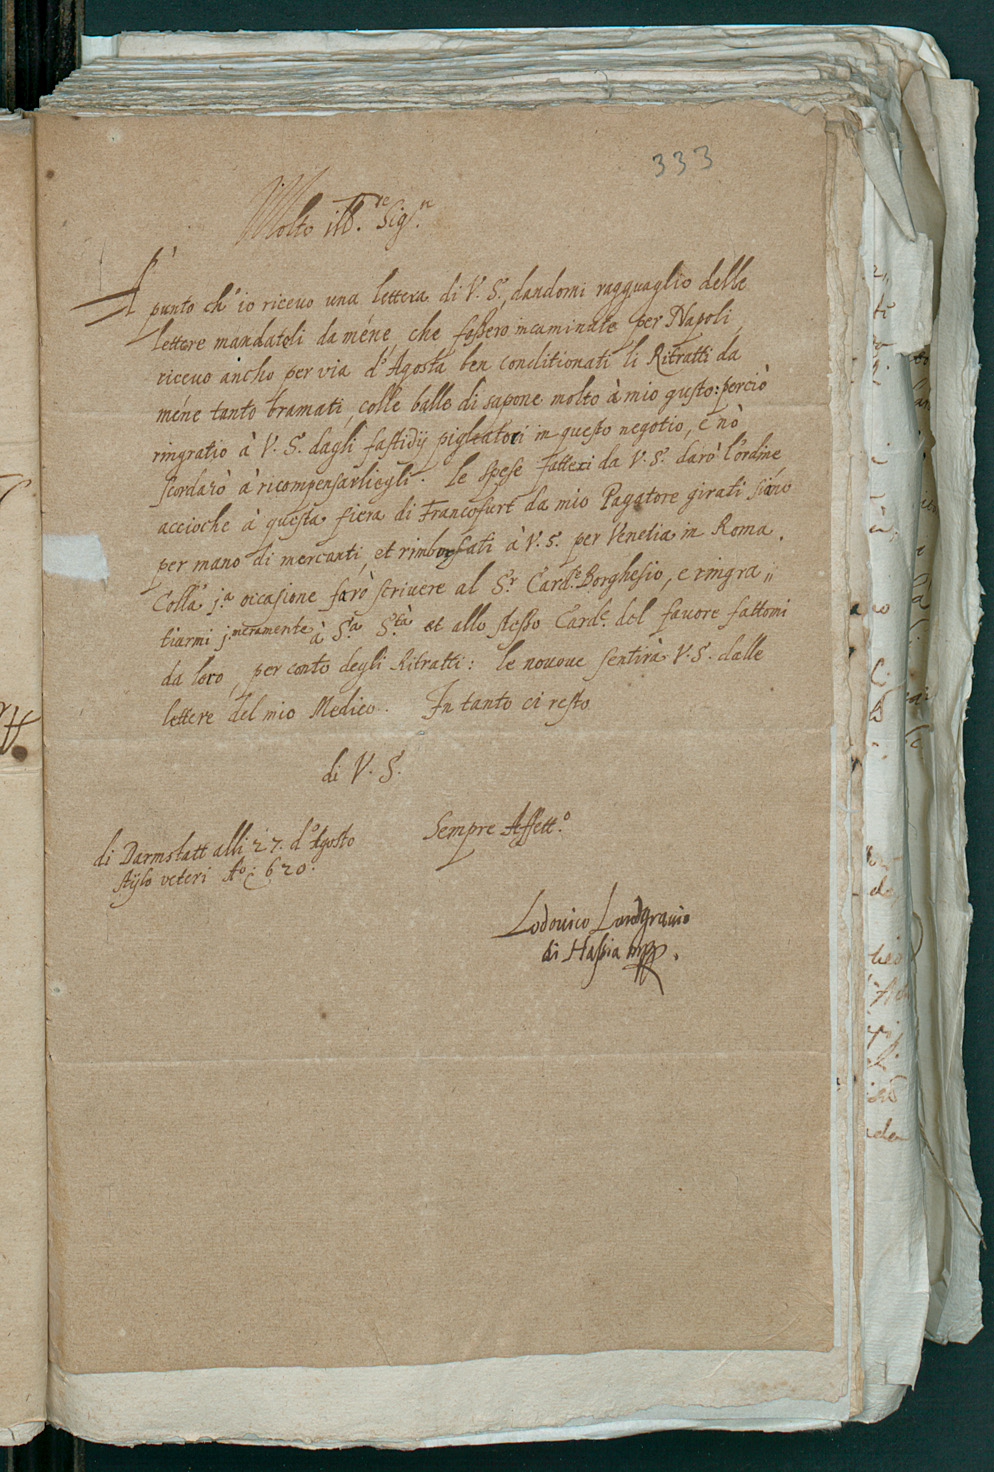 333
Molto ill.re Sig.re
A punto ch'io riceuo una lettera di V. S. dandomi ragguaglio delle
lettere mandateli da méne, che fossero incaminate per Napoli,
riceuo ancho per via d'Agosta ben conditionati li Ritratti da
méne tanto bramati, colle balle di sapone molto à mio gusto: perciò
ringratio à V. S. dagli fastidij pigliatosi in questo negotio, e nò
scordarò à ricompensarliegli. Le spese fatteci da V. S. darò l'ordine
accioche à questa fiera di Francofurt da mio Pagatore girati siano
per mano di mercanti, et rimborsati à V. S. per Venetia in Roma.
Colla j.a occasione farò scriuere al S.r Card.le Borghesio, e ringra"
tiarmi j.meramente à S.a S.tà et allo stesso Card.e del fauore fattomi
da loro, per conto degli Ritratti: le nououe sentirà V. S. dalle
lettere del mio Medico. In tanto ci resto
di V. S.
Sempre Affett.o
di Darmstatt alli 27. d'Agosto
stylo veteri Ao. 620.
Lodouico Landgrauio
di Hassia mp.